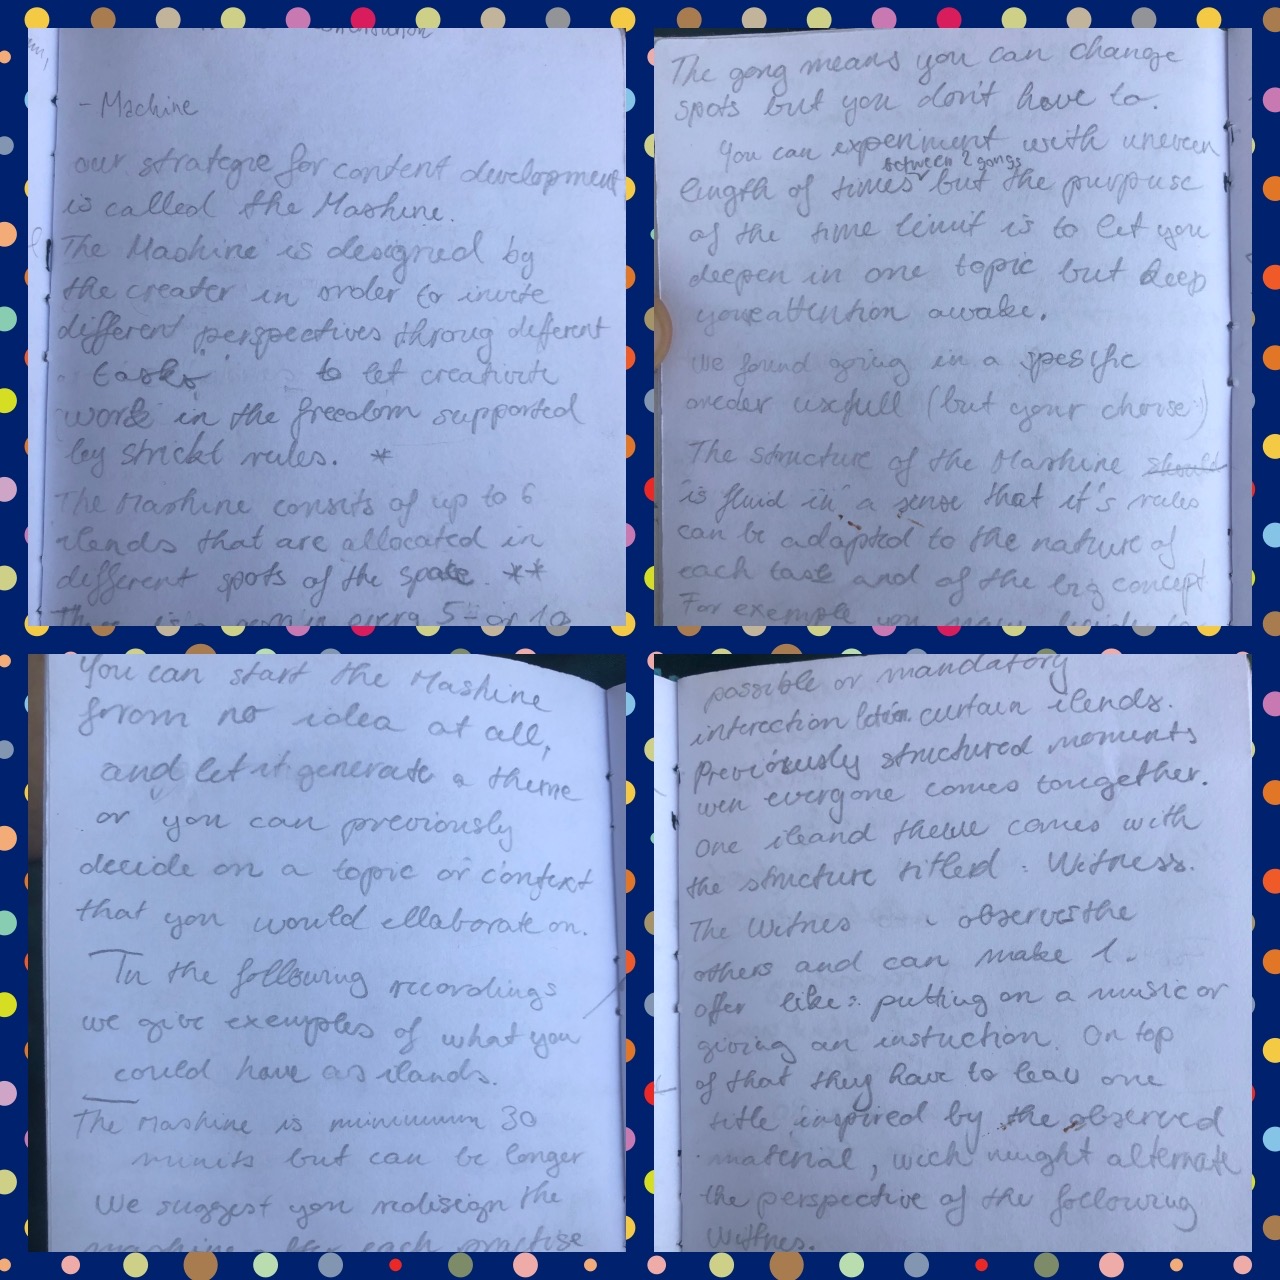 - Mashine
our strategie for content development
is called the Mashine.
The Mashine is designed by
the creater in order to invite
different perspectives throug different
tasks to let creativite
work in the freedom supported
by strickt rules. *
The Mashine consits of up to 6
ilands that are allocated in
different spots of the space. **
There is a every 5- or 10
The gong means you can change
spots but you don't have to.
You can experiment with uneven
between 2 gongs
length of times but the purpuse
of the time limit is to let you
deepen in one topic but keep
your attention awake.
We found going in a spesific
oreder usefull (but your choise:)
The structure of the Mashine should
is fluid in a sense that it's rules
can be adapted to the nature of
each task and of the big concept
For exemple you may decide to
You can start the Mashine
from no idea at all,
and let it generate a theme
or you can previously
decide on a topic or context
that you would ellaborate on.
In the following recordings
we give exemples of what you
could have as ilands.
The Mashine is minimum 30
munits but can be longer
We suggest you redisign the
mashine after each practise
possible or mandatory
interection curtain ilends.
Previously structured moments
wen everyone comes tougether.
One iland theme comes with
the structure titled: Witness.
The Witnes observes the
others and can make 1.
offer like: putting on a music or
giving an instuction. On top
of that they have to leav one
title inspired by the observed
material, wich might alternate
the perspective of the following
Wittnes.